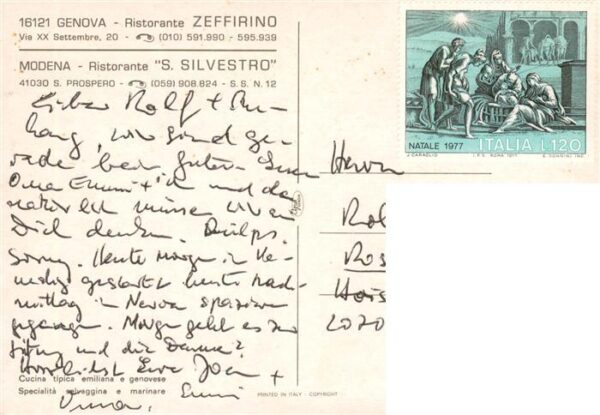 16121 GENOVA - Ristorante ZEFFIRINO
Via XX Settembre, 20 - (010) 591.990 - 595.939
MODENA - Ristorante "S. SILVESTRO"
41030 S. PROSPERO - (059) 908.824 - S.S. N. 12
Lieber Rolf +
hang, wir sind ge-
rade beim guten
Oma Emmi + ich und da
natürlich müssen wir an
Dich denken.
Heute Morge in Ve-
nedig gestartet heute Nach-
mittag in Nervi spazieren
gegangen. Morge geht es zur
und die Damen?
Herzlichst Eure Joen +
Oma. Emmi
Cucina tipica emiliana e genovese
Specialità selvaggina e marinare
PRINTED IN ITALY - COPYRIGHT
NATALE 1977 ITALIA L.120
J. CARAGLIO I.P.S. ROMA 1977 E. DONNINI INC.
Herrn
Rol
Ros
2020